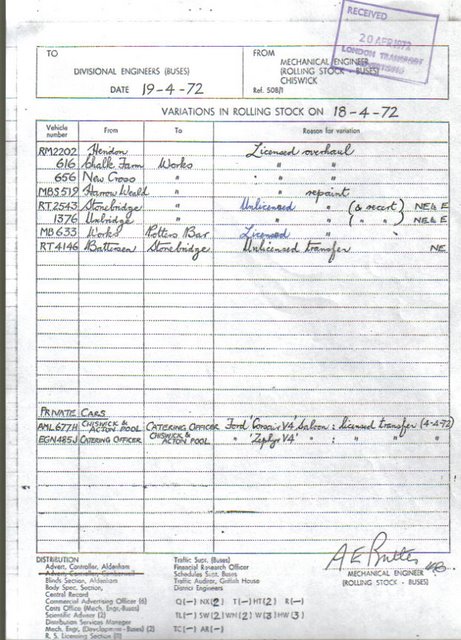 RECEIVED
20 APR 1972
LONDON TRANSPORT
ADVERTISING
TO
DIVISIONAL ENGINEERS (BUSES)
DATE 19-4-72
FROM
MECHANICAL ENGINEER
(ROLLING STOCK - BUSES)
CHISWICK
Ref. 508/1
VARIATIONS IN ROLLING STOCK ON 18-4-72
Vehicle number From To Reason for variation
RM2202 Hendon Licensed overhaul
616 Chalk Farm Works " "
656 New Cross " " "
MBS519 Harrow Weald " " repaint
RT2543 Stonebridge " Unlicensed " (& recert) NE& E
1376 Uxbridge " " " ( " " ) NE& E
MB633 Works Potters Bar Licensed "
RT4146 Battersea Stonebridge Unlicensed transfer NE
PRIVATE CARS
AML677H CHISWICK & ACTON POOL CATERING OFFICER Ford 'Corsair V4' Saloon : licensed transfer (4-4-72)
EGN485J CATERING OFFICER CHISWICK & ACTON POOL " 'Zephyr V4' " : " " "
DISTRIBUTION
Advert. Controller, Aldenham
Advert. Controller Camberwell
Blinds Section, Aldenham
Body Spec. Section,
Central Record
Commercial Advertising Officer (6)
Costs Office (Mech. Engr.-Buses)
Scientific Adviser (2)
Distribution Services Manager
Mech. Engr. (Development - Buses) (2)
R. S. Licensing Section (1)
Traffic Supt. (Buses)
Financial Research Officer
Schedules Supt. Buses
Traffic Auditor, Griffith House
District Engineers
Q(—) NX(2) T(—) HT(2) R(—)
TL(—) SW(2) WN(2) W(3) HW(3)
TC(—) AR(—)
MECHANICAL ENGINEER
(ROLLING STOCK - BUSES)